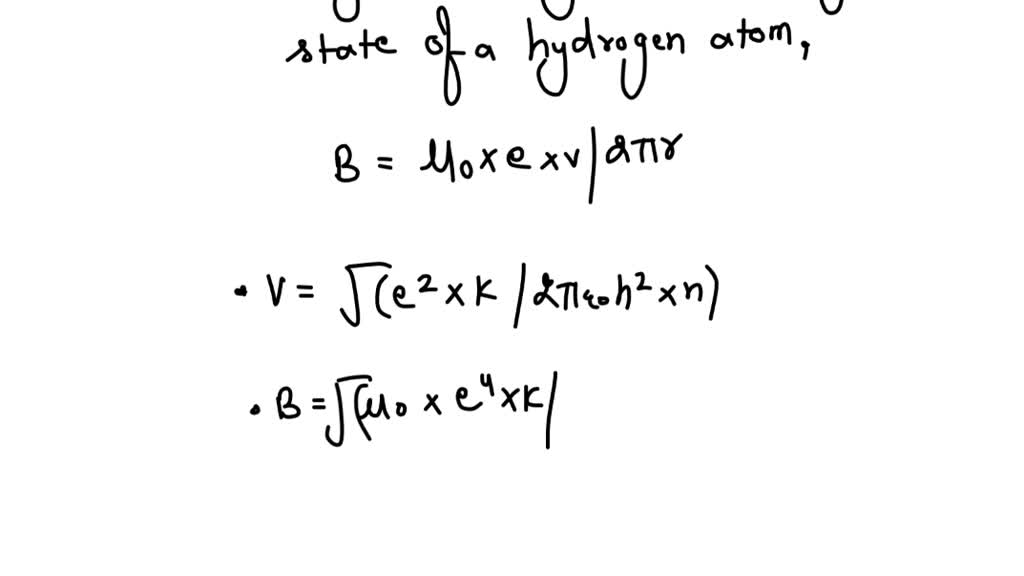 state of a hydrogen atom,
B = μ₀ x e x v / 2πr
• V = √(e² x k / 2πε₀h² x n)
• B = √(μ₀ x e⁴ x k /